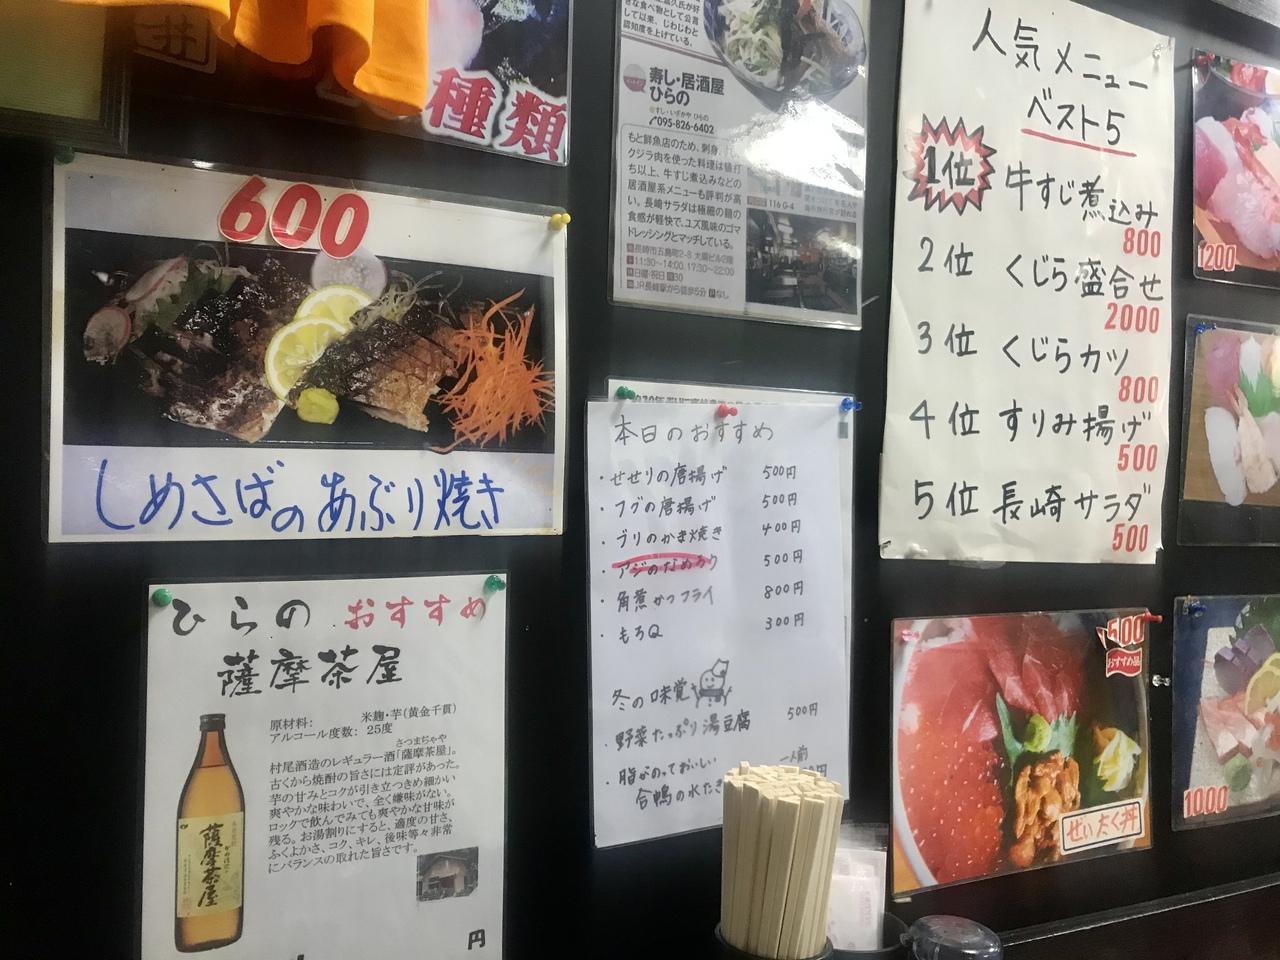 井
種類
600
しめさばのあぶり焼き
寿し・居酒屋
ひらの
095-826-6402
もと鮮魚店のため、刺身、
クジラ肉を使った料理は値打
ち以上、牛すじ煮込みなどの
居酒屋系メニューも評判が高
い。長崎サラダは極細の麺の
食感が軽快で、ユズ風味のゴマ
ドレッシングとマッチしている。
長崎市五島町2-8 大興ビル2階
11:30~14:00 17:30~22:00
日曜・祝日 30
JR長崎駅から徒歩5分 なし
116 G-4
人気メニュー
ベスト5
1位 牛すじ煮込み
800
2位 くじら盛合せ
2000
3位 くじらカツ
800
4位 すりみ揚げ
500
5位 長崎サラダ
500
1200
本日のおすすめ
・せせりの唐揚げ 500円
・フグの唐揚げ 500円
・ブリのかま焼き 400円
・アジのなめろう 500円
・角煮かつフライ 800円
・もろQ 300円
冬の味覚
・野菜たっぷり湯豆腐 500円
・脂がのっておいしい 一人前
合鴨の水たき
ひらの おすすめ
薩摩茶屋
原材料: 米麹・芋(黄金千貫)
アルコール度数: 25度
さつまぢゃや
村尾酒造のレギュラー酒「薩摩茶屋」。
古くから焼酎の旨さには定評があった。
芋の甘みとコクが引き立つきめ細かい
爽やかな味わいで、全く嫌味がない。
ロックで飲んでみても爽やかな甘味が
残る。お湯割りにすると、適度の甘さ、
ふくよかさ、コク、キレ、後味等々非常
にバランスの取れた旨さです。
薩摩茶屋
円
500
おすすめ品
ぜいたく丼
1000